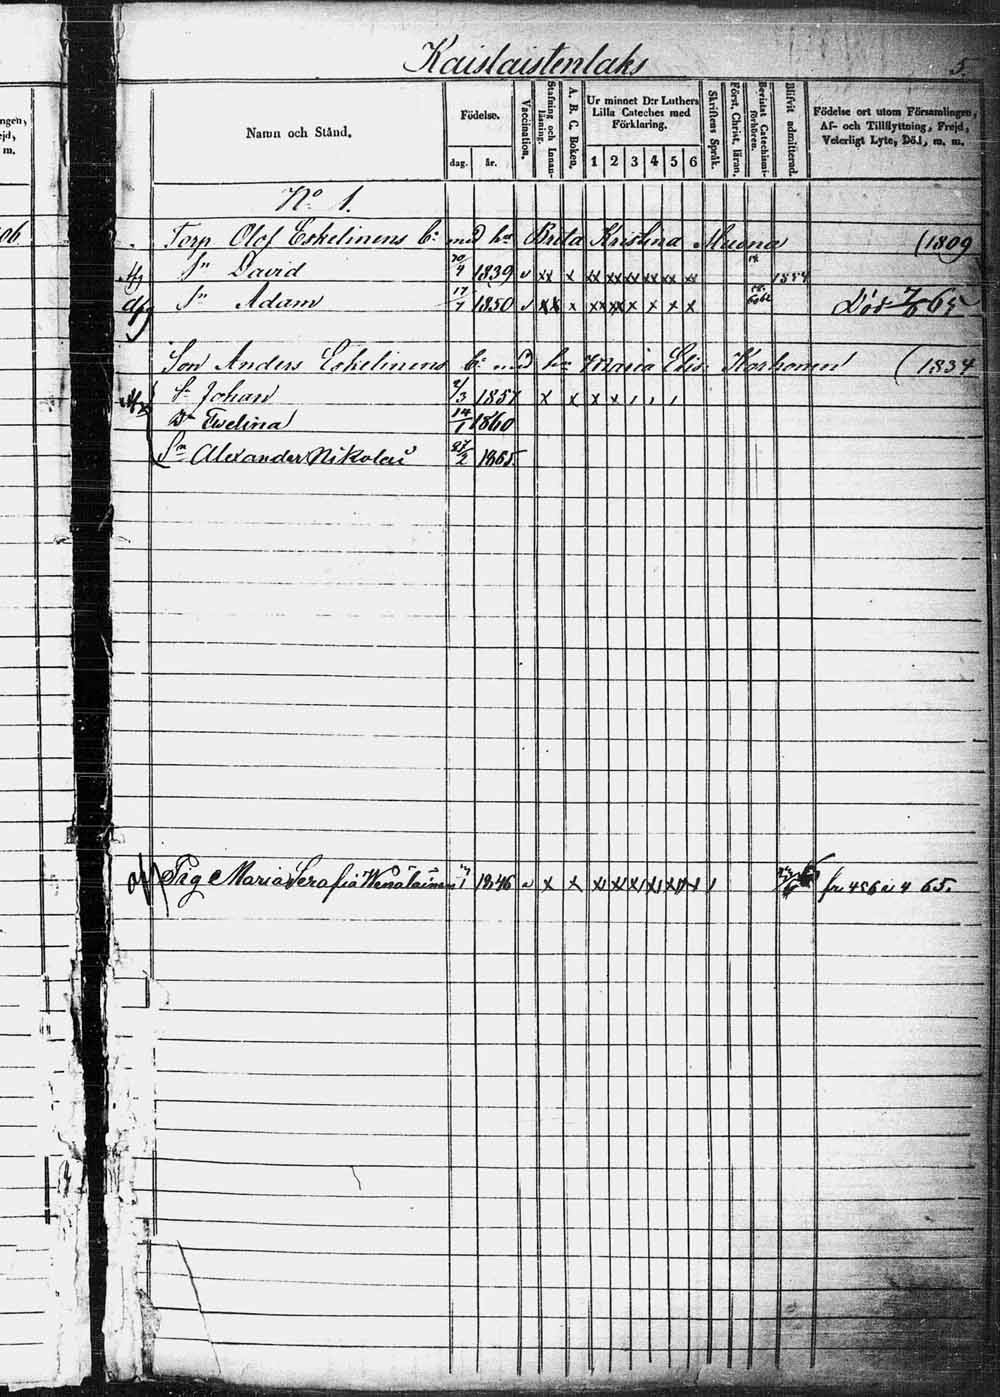 Kaislaistenlaks
5.
Namn och Stånd.
Födelse.
dag. år.
Vaccination.
Stafning och Innan-läsning.
A. B. C. Boken.
Ur minnet D:r Luthers Lilla Cateches med Förklaring.
1 2 3 4 5 6
Skriftens Språk.
Först. Christ. läran.
Bevistat Catechismi-förhören.
Blifvit admitterad.
Födelse ort utom Församlingen, Af- och Tillflyttning, Frejd, Veterligt Lyte, Död, m. m.
ngen,
ejd,
m.
No 1.
06
Torp Olof Eskelinens med hu Brita Kristina (1809
Sn David 1839 v xx x xx xx xx xx xx x 1854
Sn Adam 17/7 1850 v xx x xx xx x x x x Död 65
Son Anders Eskelinens med hu Maria Elis: Korhonen (1834
Sn Johan 1857 x x x x
Dr Ewelina 14/1 1860
Sn Alexander Nikolai 27/2 1865.
Pig Maria Serafia Wenäläinen 1846 x x x x x x x x fr 456 65.